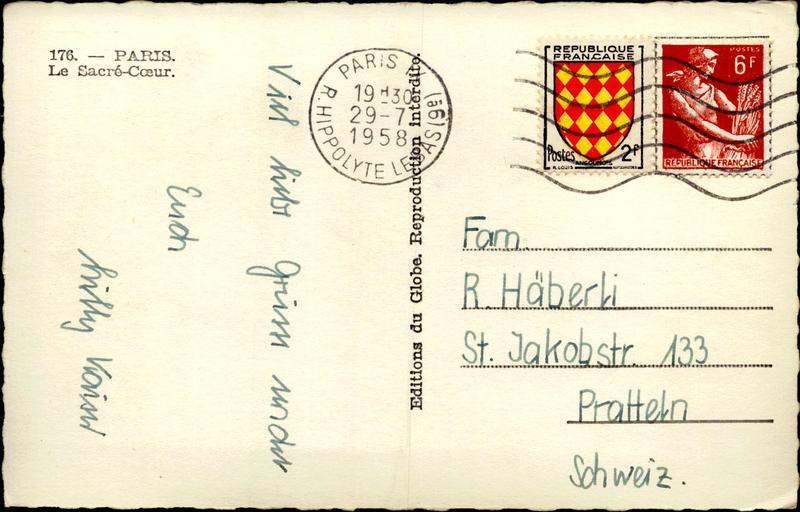 176. — PARIS.
Le Sacré-Cœur.
PARIS IV
19H30
29-7
1958
R. HIPPOLYTE LEBAS (9e)
REPUBLIQUE
FRANÇAISE
Postes 2F
ANGOUMOIS
POSTES
6F
REPUBLIQUE FRANÇAISE
Editions du Globe. Reproduction interdite.
Viel liebe Grüsse
Euch
Fam.
R. Häberli
St. Jakobstr. 133
Pratteln
Schweiz.